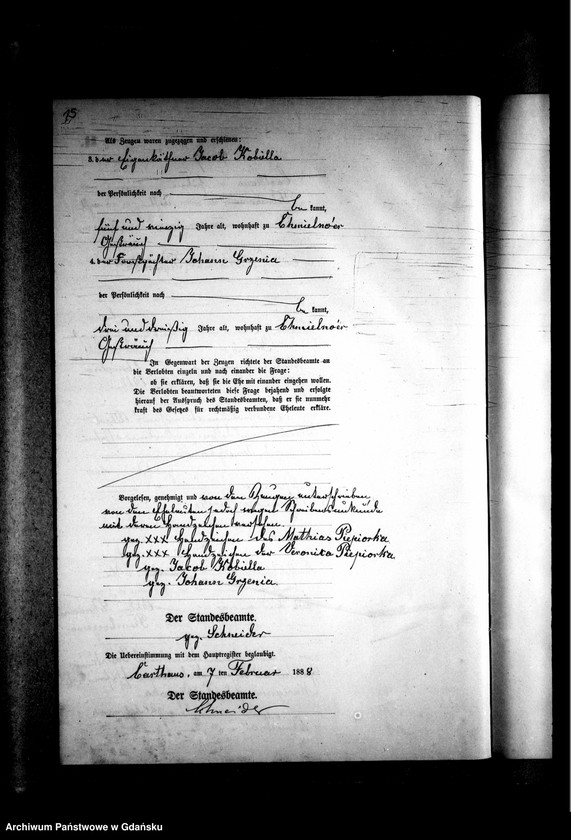 15
Als Zeugen waren zugezogen und erschienen:
3. der Eigenkäthner Jacob Kobella
der Persönlichkeit nach
be kannt,
fünf und vierzig Jahre alt, wohnhaft zu Chmielno'er
Gesträuch
4. der Johann Grzenia
der Persönlichkeit nach
be kannt,
drei und dreißig Jahre alt, wohnhaft zu Chmielno'er
Gesträuch
In Gegenwart der Zeugen richtete der Standesbeamte an
die Verlobten einzeln und nach einander die Frage:
ob sie erklären, daß sie die Ehe mit einander eingehen wollen.
Die Verlobten beantworteten diese Frage bejahend und erfolgte
hierauf der Ausspruch des Standesbeamten, daß er sie nunmehr
kraft des Gesetzes für rechtmäßig verbundene Eheleute erkläre.
Vorgelesen, genehmigt und von den Zeugen unterschrieben
von den Eheleuten jedoch wegen Schreibensunkunde
mit deren Handzeichen versehen.
gez. XXX Handzeichen des Mathias Piepiorka
gez. XXX Handzeichen der Veronika Piepiorka
gez. Jacob Kobella
gez. Johann Grzenia.
Der Standesbeamte.
gez. Schneider
Die Uebereinstimmung mit dem Hauptregister beglaubigt.
Carthaus, am 7 ten Februar 1888
Der Standesbeamte.
Schneider
Archiwum Państwowe w Gdańsku